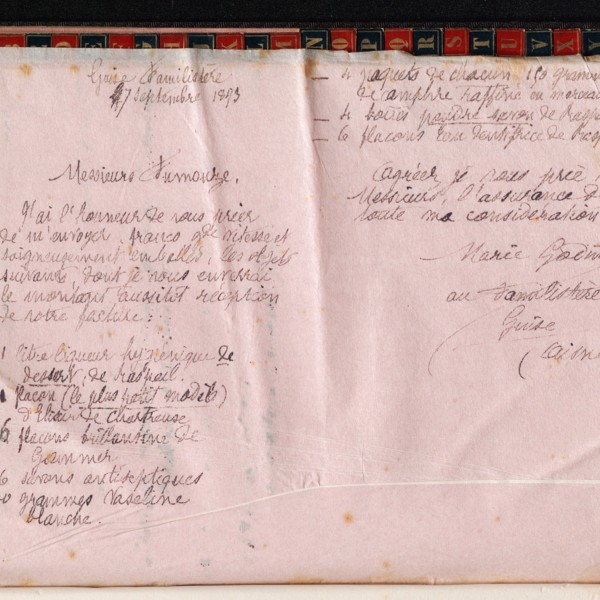 Guise Familistère
27 septembre 1893
Messieurs Fumouze,
J'ai l'honneur de vous prier
de m'envoyer, franco gde vitesse et
soigneusement emballés, les objets
suivants dont je vous enverrai
le montant aussitôt réception
de votre facture:
1 litre liqueur hygiénique de
dessert, de Raspail.
1 flacon (le plus petit modèle)
d'Elixir de Chartreuse
6 flacons brillantine de
6 savons antiseptiques
0 grammes vaseline
blanche.
4 paquets de chacun 150 gramm
de camphre raffiné en morceau
4 boites poudre savon de Rasp
6 flacons Eau dentifrice de Rasp
Agréez je vous prie,
Messieurs, l'assurance d
toute ma considération
Marie God
au Familistère
Guise
(Aisn
D E K L M N O P Q R S T U V X Y